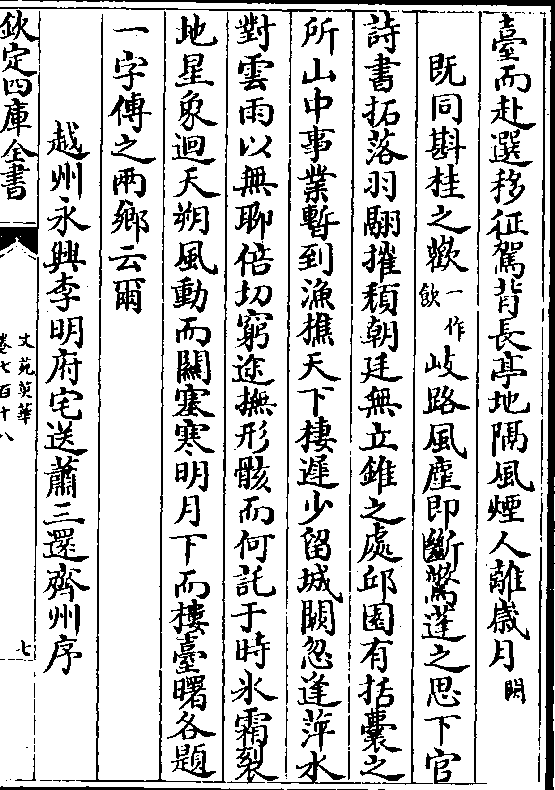 臺而赴選移征駕背長亭地隔風煙人離歲月闕
既同斟桂之歡一作飲岐路風塵即斷驚蓬之思下官
詩書拓落羽翮摧頽朝廷無立錐之處邱園有括囊之
所山中事業暫到漁樵天下棲遲少留城闕忽逢萍水
對雲雨以無聊倍切窮途撫形骸而何託于時氷霜裂
地星象迴天朔風動而關塞寒明月下而樓臺曙各題
一字傳之兩鄉云爾
越州永興李明府宅送蕭三還齊州序
欽定四庫全書
文苑英華
卷七百十八
七